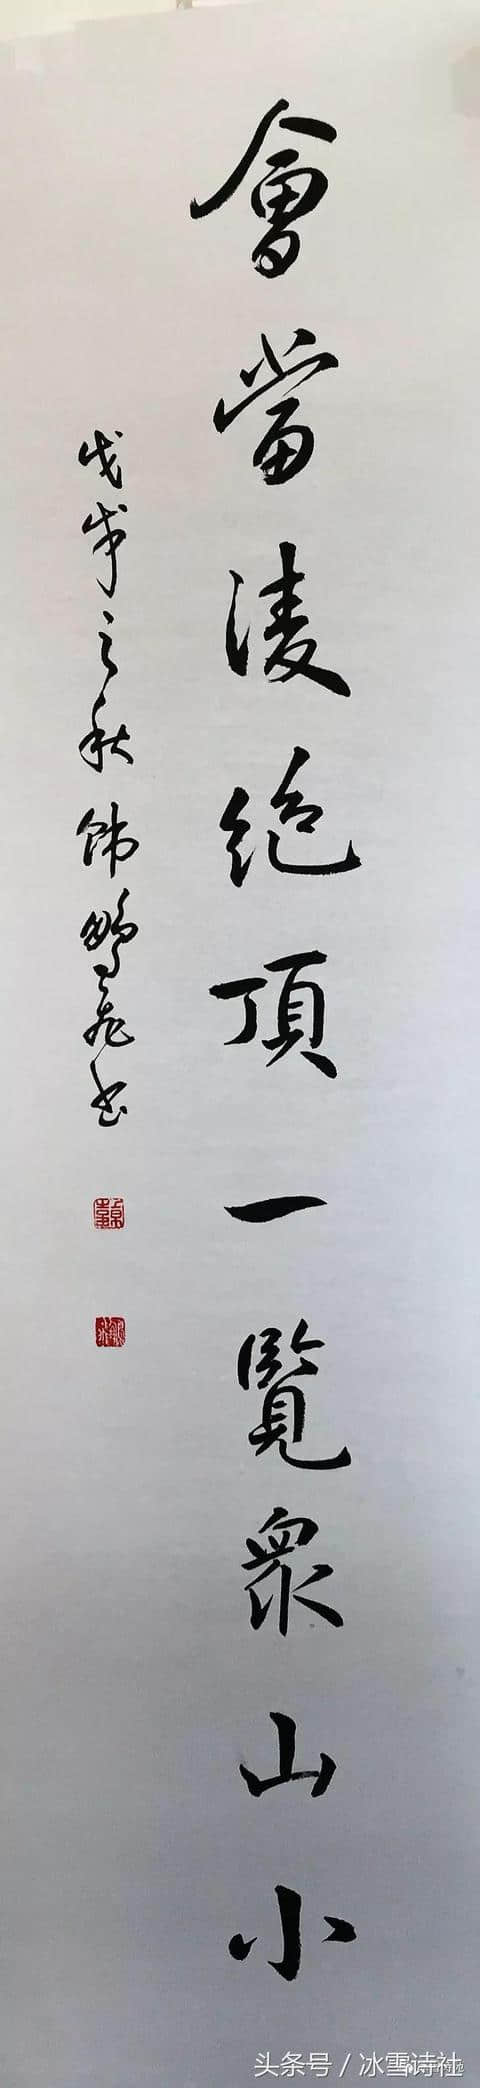 會當淩絶頂一覽眾山小
戊戌之秋韩鹏飞书
头条号／冰雪诗社